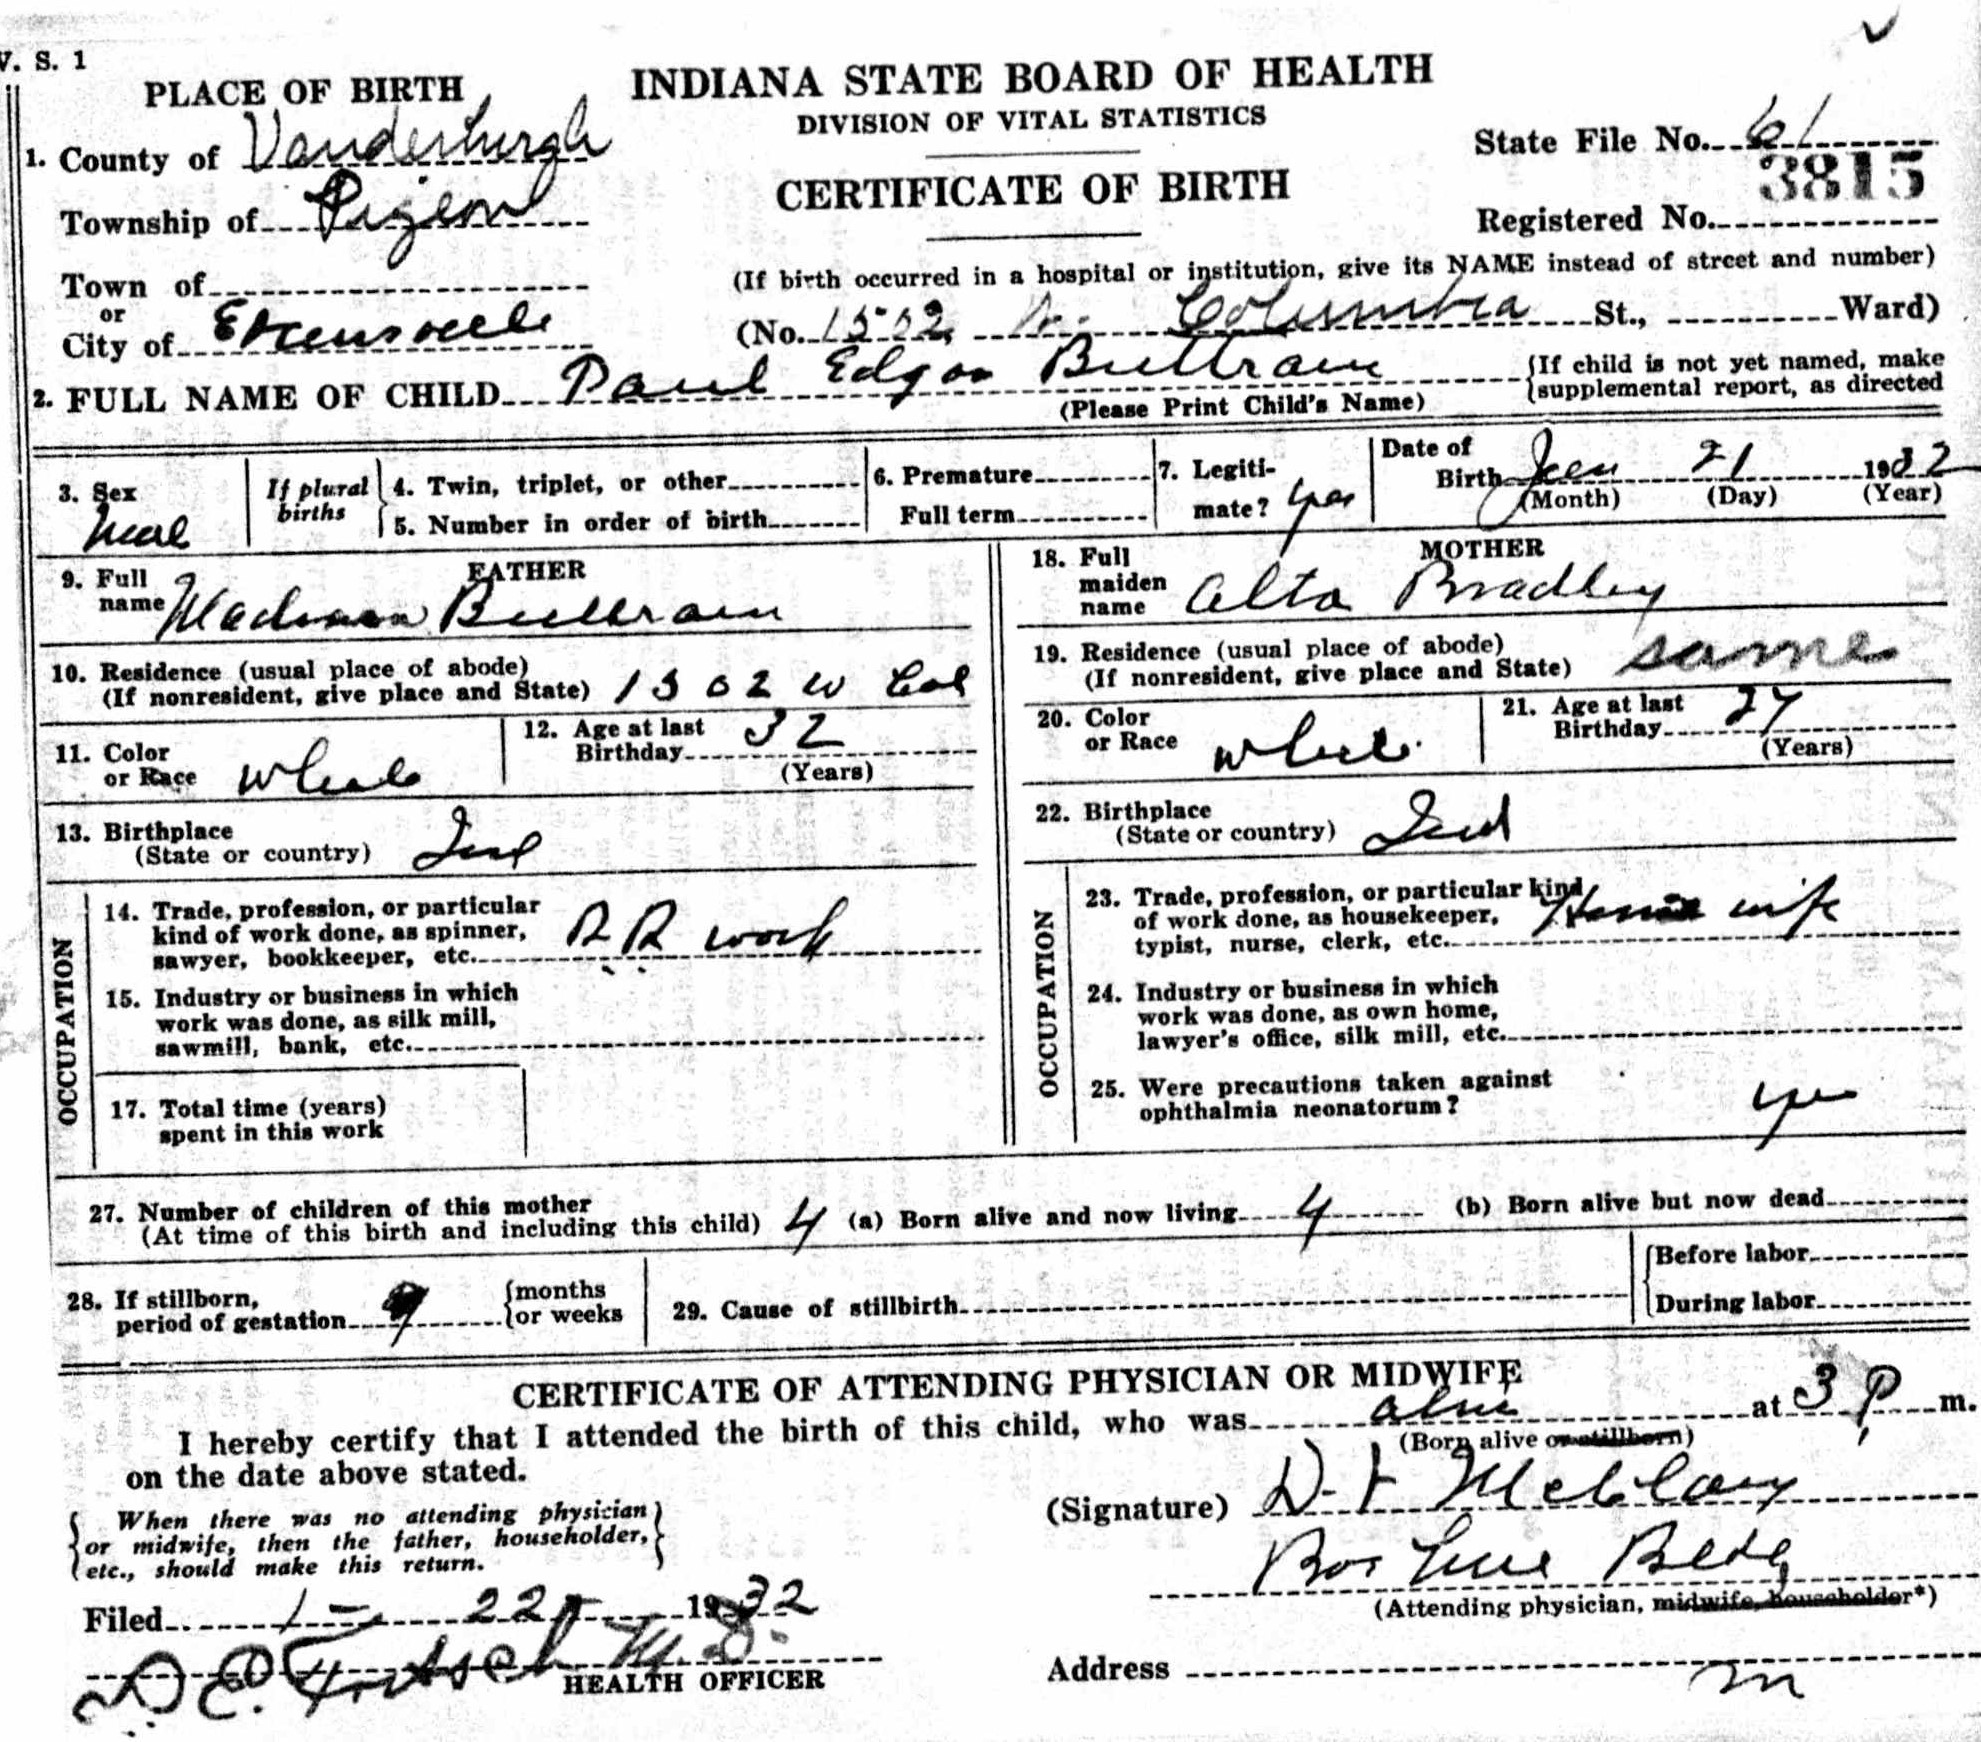 V. S. 1
PLACE OF BIRTH
INDIANA STATE BOARD OF HEALTH
DIVISION OF VITAL STATISTICS
CERTIFICATE OF BIRTH
State File No. 61
3815
Registered No.
1. County of Vanderburgh
Township of Pigeon
Town of
or
City of Evansville
(If birth occurred in a hospital or institution, give its NAME instead of street and number)
(No. 1502 W. Columbia St., Ward)
2. FULL NAME OF CHILD Paul Edgar Buttram
(Please Print Child's Name)
(If child is not yet named, make
supplemental report, as directed
3. Sex
Male
If plural
births
4. Twin, triplet, or other
5. Number in order of birth
6. Premature
Full term
7. Legiti-
mate? yes
Date of
Birth Jan 21 1932
(Month) (Day) (Year)
FATHER
9. Full
name Madison Buttram
10. Residence (usual place of abode)
(If nonresident, give place and State) 1502 W Col
11. Color
or Race white
12. Age at last
Birthday 32
(Years)
13. Birthplace
(State or country) Ind
OCCUPATION
14. Trade, profession, or particular
kind of work done, as spinner,
sawyer, bookkeeper, etc. RR work
15. Industry or business in which
work was done, as silk mill,
sawmill, bank, etc.
17. Total time (years)
spent in this work
MOTHER
18. Full
maiden
name Alta Bradley
19. Residence (usual place of abode)
(If nonresident, give place and State) same
20. Color
or Race white
21. Age at last
Birthday
(Years)
22. Birthplace
(State or country) Ind
OCCUPATION
23. Trade, profession, or particular kind
of work done, as housekeeper,
typist, nurse, clerk, etc. House wife
24. Industry or business in which
work was done, as own home,
lawyer's office, silk mill, etc.
25. Were precautions taken against
ophthalmia neonatorum? yes
27. Number of children of this mother
(At time of this birth and including this child) 4 (a) Born alive and now living 4 (b) Born alive but now dead
28. If stillborn,
period of gestation 9 months
or weeks
29. Cause of stillbirth
Before labor
During labor
CERTIFICATE OF ATTENDING PHYSICIAN OR MIDWIFE
I hereby certify that I attended the birth of this child, who was alive at 3 P m.
(Born alive or stillborn)
on the date above stated.
When there was no attending physician
or midwife, then the father, householder,
etc., should make this return.
(Signature) McClary
Bldg
(Attending physician, midwife, householder*)
Filed 1 - 22 - 1932
Fritsch M.D.
HEALTH OFFICER
Address
m